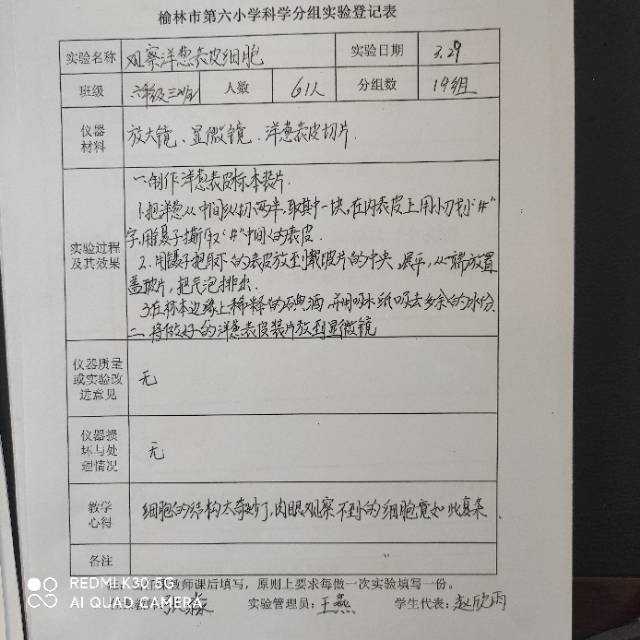 榆林市第六小学科学分组实验登记表
实验名称 观察洋葱表皮细胞 实验日期 3.29
班级 六年级三班 人数 61人 分组数 14组
仪器材料 放大镜、显微镜、洋葱表皮切片.
实验过程及其效果
一.制作洋葱表皮标本装片.
1.把洋葱从中间纵切两半,取其中一块,在内表皮上用小刀划“#”
字,用镊子撕取“#”中间的表皮.
2.用镊子把取下的表皮放到载玻片的中央,展平,从一端放置
盖玻片,把气泡排出.
3.在标本边缘上稀释的碘酒,并用吸水纸吸去多余的水份.
二.将做好的洋葱表皮装片放到显微镜
仪器质量或实验改进意见 无
仪器损坏与处理情况 无
教学心得 细胞的结构太奇妙了,肉眼观察不到的细胞竟如此复杂.
备注
课后填写,原则上要求每做一次实验填写一份。
实验管理员:王燕 学生代表:赵欣雨
REDMI K30 5G
AI QUAD CAMERA